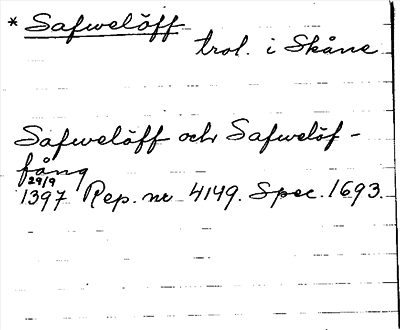 * Safwelöff
trol. i Skåne
Safwelöff och Safwelöf-
fång
29/9
1397 Rep. nr 4149. Spec. 1693.